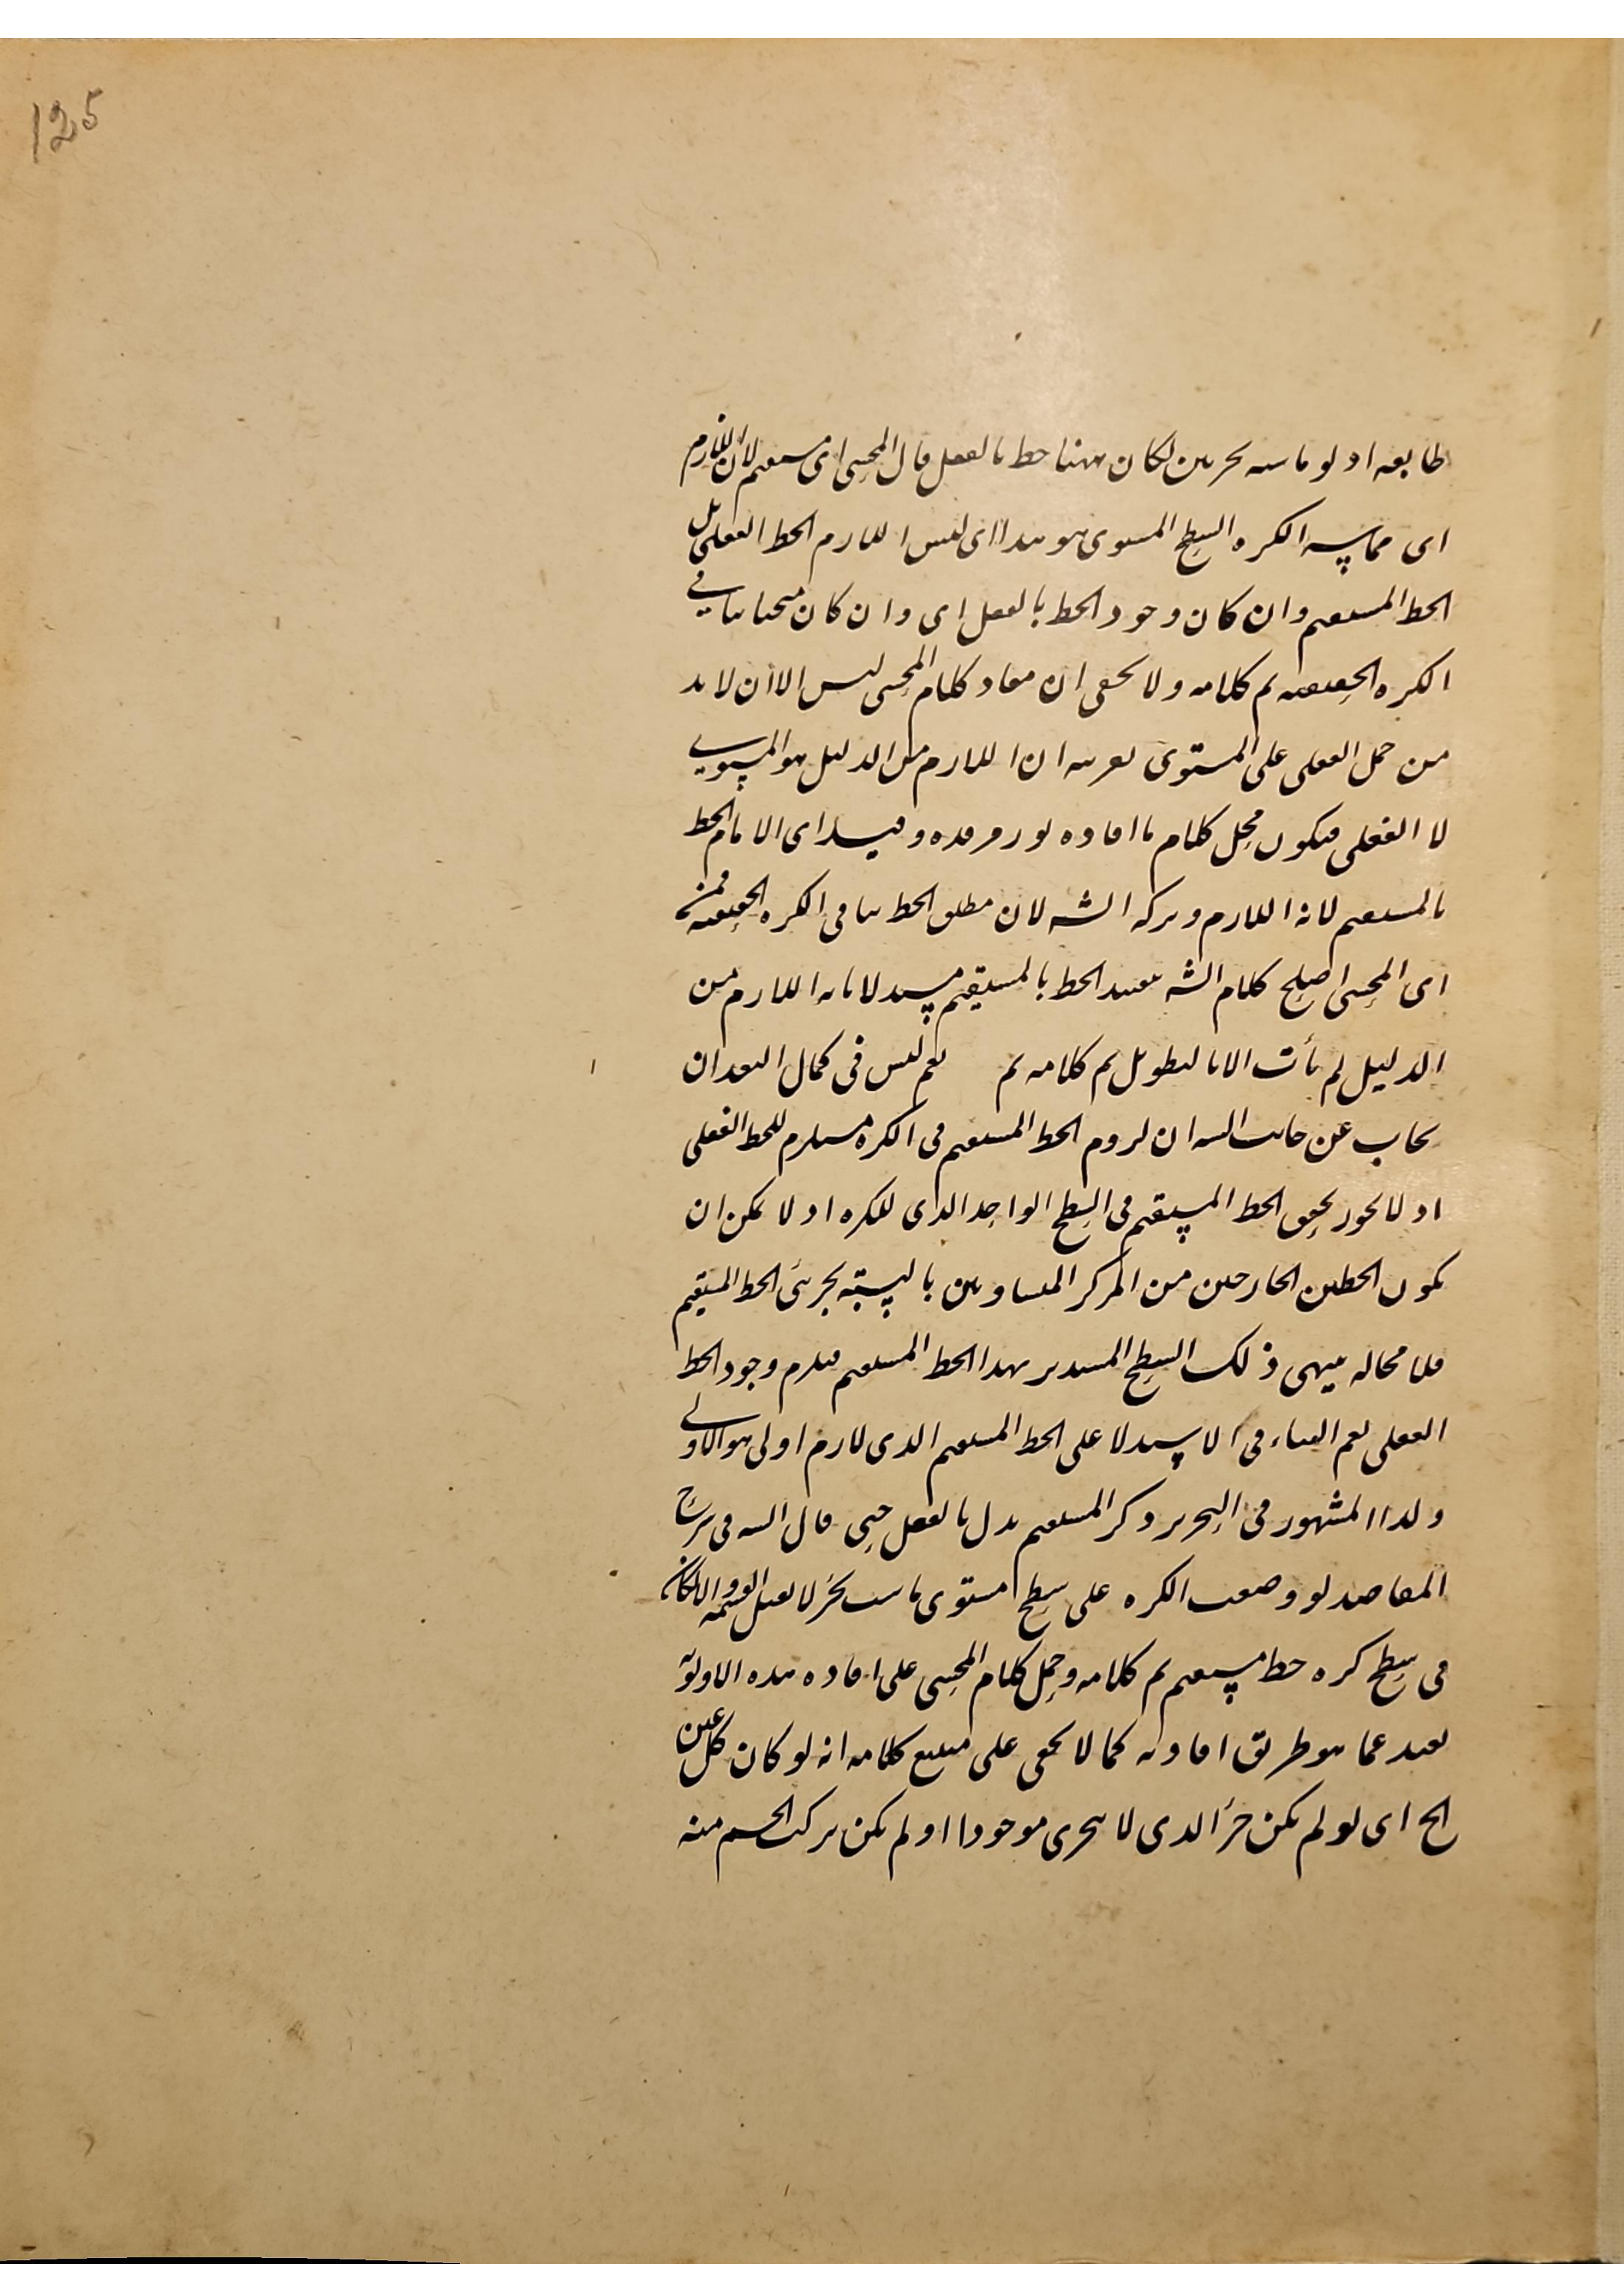 125
طابعه اذ لو ماسته بجزئين لكان ههنا خط بالفعل قال المحشى اى مستقيم لان اللازم
اى مماسة الكره السطح المستوى هو هذا اى ليس اللازم الخط الفعلى بل
الخط المستقيم وان كان وجود الخط بالفعل اى وان كان منحنيا ينافي
الكره الحقيقيه تم كلامه ولا يخفى ان مفاد كلام المحشى ليس الا ان لا بد
من حمل الفعلى على المستوى بقرينه ان اللازم من الدليل هو المستوي
لا الفعلى فيكون محل كلام ما افاده نور مرقده وقيد اى الامام الخط
بالمستقيم لانه اللازم وتركه الشه لان مطلق الخط ينافى الكره الحقيقيه فمن
اى المحشى اصلح كلام الشه بتقييد الخط بالمستقيم مستدلا بانه اللازم من
الدليل لم يأت الا بالتطويل تم كلامه تم نعم ليس فى كمال البعد ان
يجاب عن جانب الشه ان لزوم الخط المستقيم فى الكره مستلزم للخط الفعلى
اذ لا يجوز تحقق الخط المستقيم فى السطح الواحد الذى للكره اذ لا يمكن ان
يكون الخطين الخارجين من المركز المتساويين بالنسبته بجزئى الخط المستقيم
فلا محاله ينتهى ذلك السطح المستدير بهذا الخط المستقيم فيلزم وجود الخط
الفعلى نعم البناء فى الاستدلال على الخط المستقيم الذى لازم اولى هو الاولى
ولذا المشهور فى التحرير ذكر المستقيم بدل بالفعل حتى قال الشه فى شرح
المقاصد لو وضعت الكره على سطح مستوى ماست بجزء لا يقبل القسمه والا لكان
فى سطح كره خط مستقيم تم كلامه وحمل كلام المحشى على افاده هذه الاولويه
بعيد عما هو طريق افادته كما لا يخفى على متتبع كلامه انه لو كان كل عين
الخ اى لو لم يكن جزء الذى لا يتجزى موجودا او لم يكن تركب الجسم منه